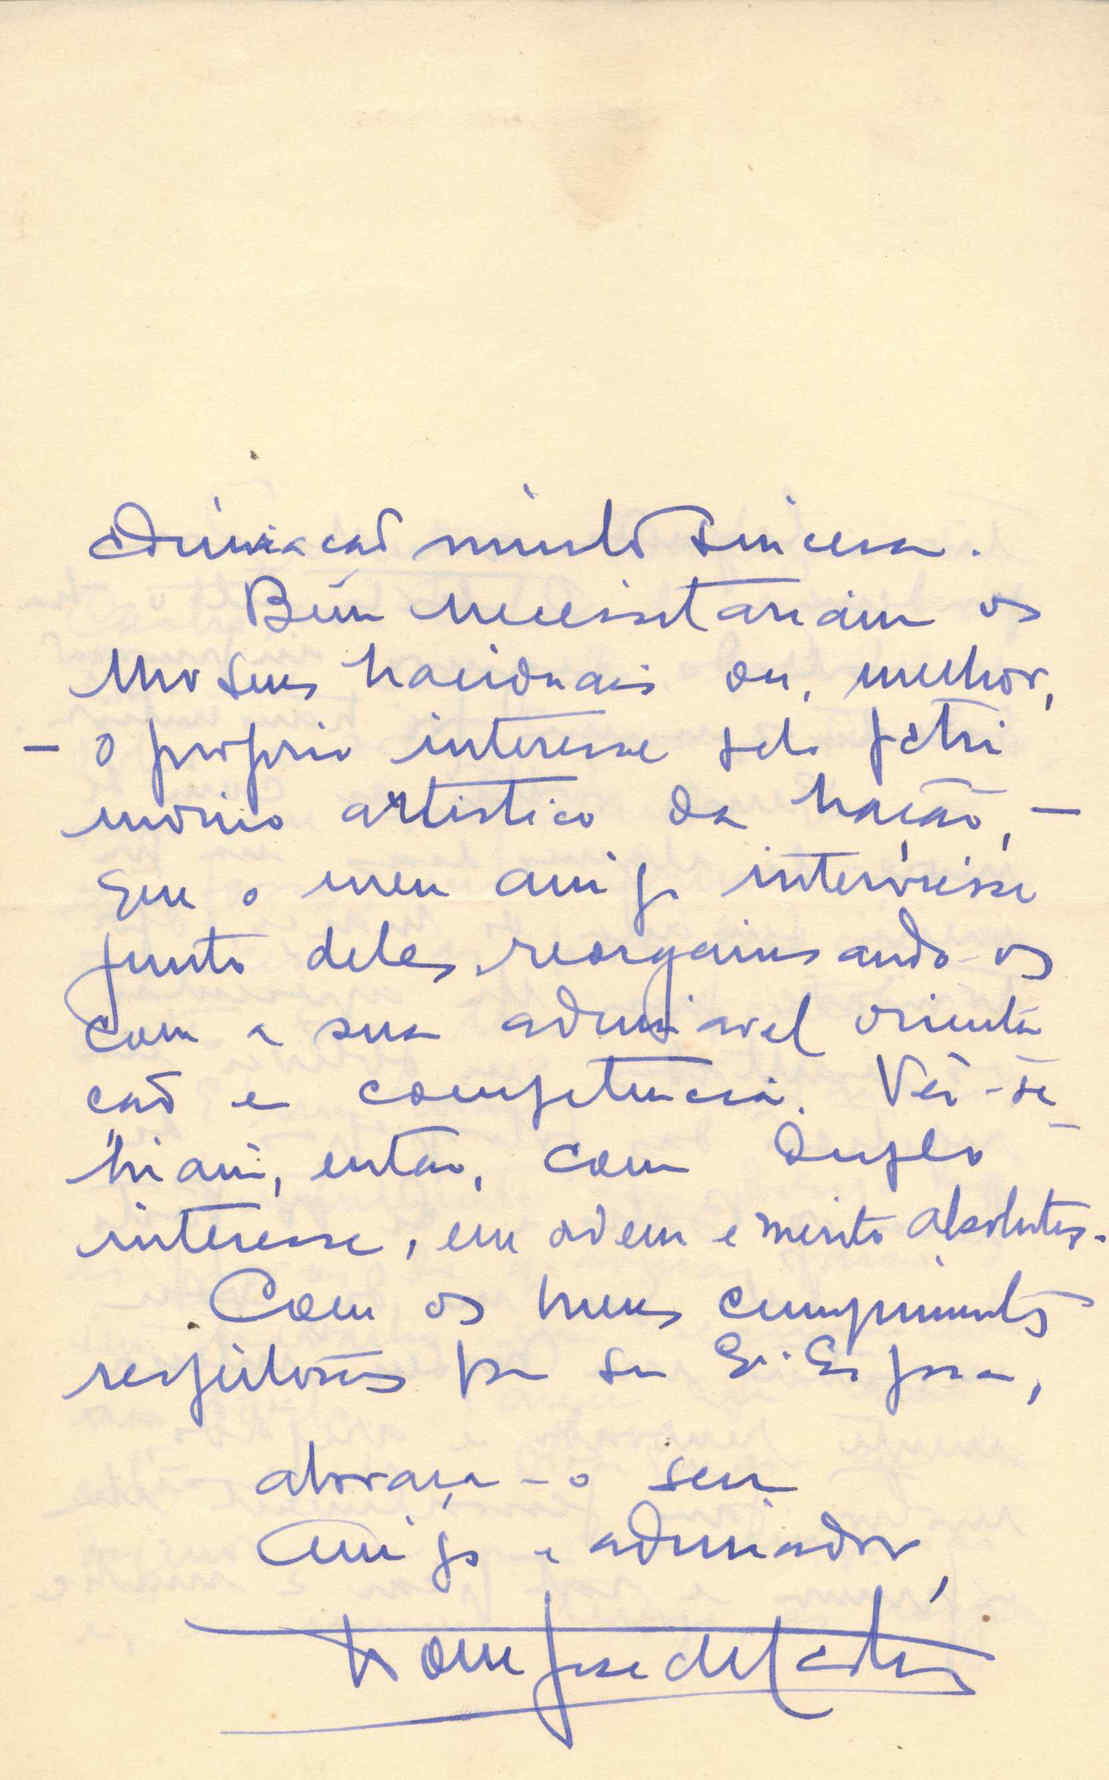 admiração muito sincera.
Bem necessitariam os
Museus Nacionais ou, melhor,
— o proprio interesse pelo patri
monio artistico da Nação, —
que o meu amigo interviesse
junto deles, reorganisando-os
com a sua admiravel orienta
ção e competencia. Vêr-se-
hiam, então, com duplo
interesse, em ordem e merito absolutos.
Com os meus cumprimentos
respeitosos para sua Exª. Esposa,
abraça-o seu
amigo e admirador,